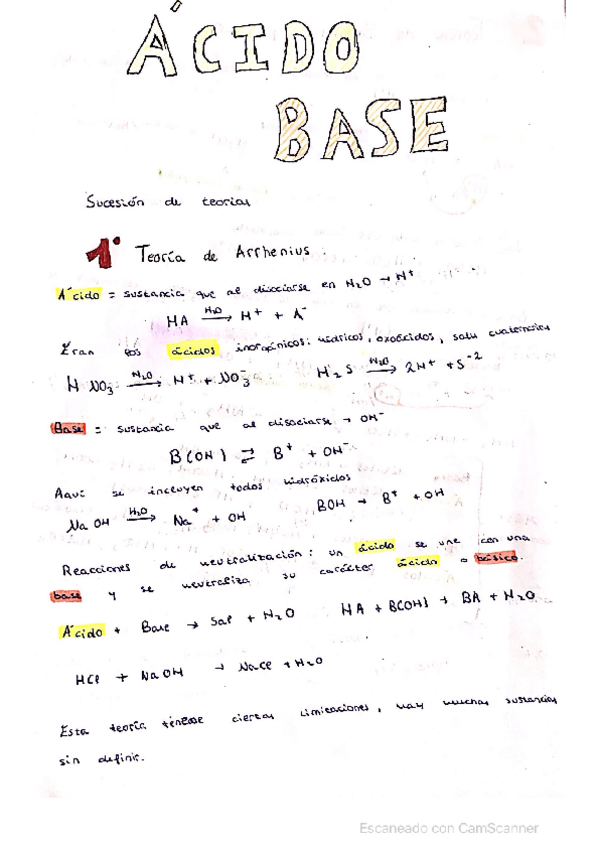 ÁCIDO
BASE
Sucesión de teorías
1º Teoría de Arrhenius:
Ácido = sustancia que al disociarse en H₂O → H⁺
HA —H₂O→ H⁺ + A⁻
Eran los ácidos inorgánicos: hídricos, oxoácidos, sales cuaternarias
HNO₃ —H₂O→ H⁺ + NO₃⁻ H₂S —H₂O→ 2H⁺ + S⁻²
Base = sustancia que al disociarse → OH⁻
B(OH) ⇄ B⁺ + OH⁻
Aquí se incluyen todos hidróxidos
NaOH —H₂O→ Na⁺ + OH BOH → B⁺ + OH
Reacciones de neutralización: un ácido se une con una
base y se neutraliza su carácter ácido o básico.
Ácido + Base → Sal + H₂O HA + B(OH) → BA + H₂O
HCl + NaOH → NaCl + H₂O
Esta teoría ciertas limitaciones, hay muchas sustancias
sin definir.
Escaneado con CamScanner